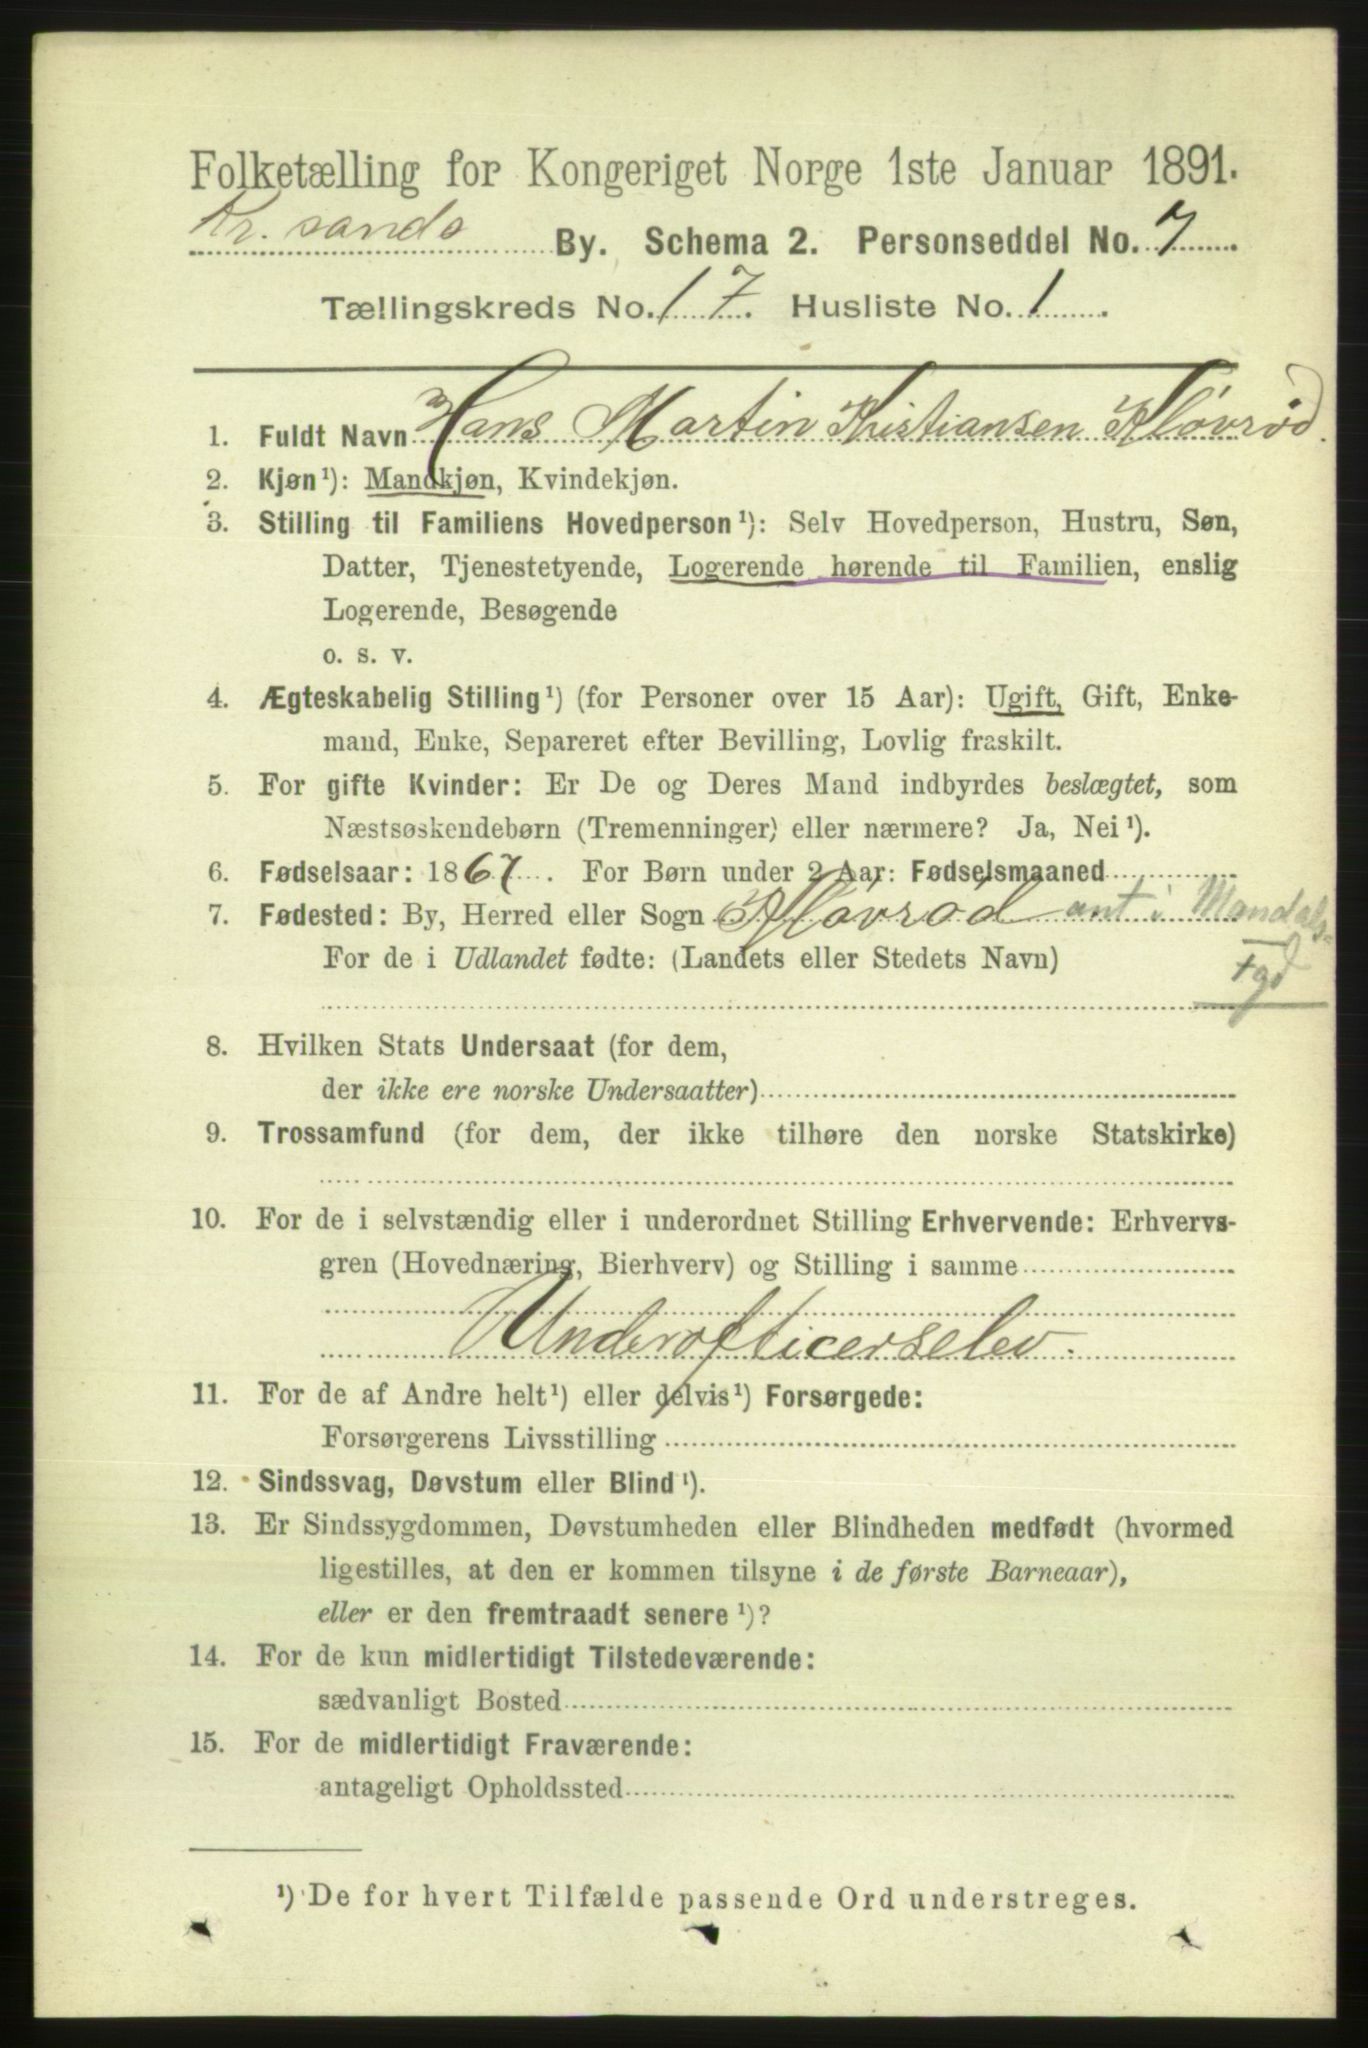 Folketælling for Kongeriget Norge 1ste Januar 1891.
Kr. sands By. Schema 2. Personseddel No. 7
Tællingskreds No. 17. Husliste No. 1.
1. Fuldt Navn Hans Martin Kristiansen Kløvrød.
2. Kjøn¹): Mandkjøn, Kvindekjøn.
3. Stilling til Familiens Hovedperson¹): Selv Hovedperson, Hustru, Søn,
Datter, Tjenestetyende, Logerende hørende til Familien, enslig
Logerende, Besøgende
o. s. v.
4. Ægteskabelig Stilling¹) (for Personer over 15 Aar): Ugift, Gift, Enke-
mand, Enke, Separeret efter Bevilling, Lovlig fraskilt.
5. For gifte Kvinder: Er De og Deres Mand indbyrdes beslægtet, som
Næstsøskendebørn (Tremenninger) eller nærmere? Ja, Nei¹).
6. Fødselsaar: 1867. For Børn under 2 Aar: Fødselsmaaned
7. Fødested: By, Herred eller Sogn Kløvrød ant i Mandals-
For de i Udlandet fødte: (Landets eller Stedets Navn) Fgd
8. Hvilken Stats Undersaat (for dem,
der ikke ere norske Undersaatter)
9. Trossamfund (for dem, der ikke tilhøre den norske Statskirke)
10. For de i selvstændig eller i underordnet Stilling Erhvervende: Erhvervs-
gren (Hovednæring, Bierhverv) og Stilling i samme
Underofficerselev.
11. For de af Andre helt¹) eller delvis¹) Forsørgede:
Forsørgerens Livsstilling
12. Sindssvag, Døvstum eller Blind¹).
13. Er Sindssygdommen, Døvstumheden eller Blindheden medfødt (hvormed
ligestilles, at den er kommen tilsyne i de første Barneaar),
eller er den fremtraadt senere¹)?
14. For de kun midlertidigt Tilstedeværende:
sædvanligt Bosted
15. For de midlertidigt Fraværende:
antageligt Opholdssted
¹) De for hvert Tilfælde passende Ord understreges.